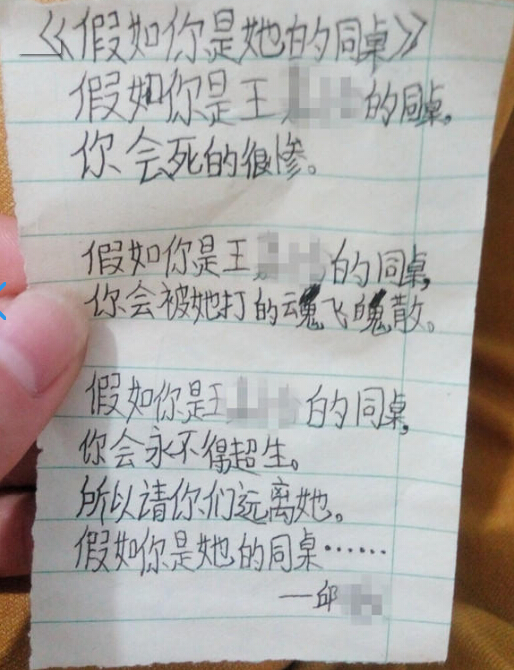 《假如你是她的同桌》
假如你是王 的同桌,
你会死的很惨。
假如你是王 的同桌,
你会被她打的魂飞魄散。
假如你是王 的同桌,
你会永不得超生。
所以请你们远离她。
假如你是她的同桌……
—邱